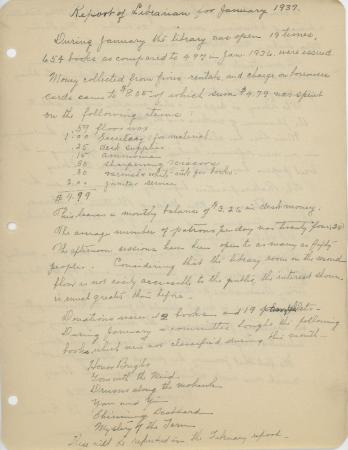 Report of Librarian for January 1937.
During January the library was open 19 times,
654 books as compared to 497 in Jan. 1936 were issued.
Money collected from fines rentals and charge on borrowers
cards came to $8.05 of which sum $4.79 was spent
on the following items:
.59 floor wax
1.00 Secretary for material
.25 desk supplies
.15 ammonia
.50 sharpening scissors
.30 varnish white ink for books
2.00 janitor service
$4.79
This leaves a monthly balance of $3.26 in desk money.
The average number of patrons per day was twenty four (24)
The afternoon sessions have been open to as many as fifty
people. Considering that the library room on the second
floor is not easily accessible to the public the interest shown
is much greater than before.
Donations were 12 books and 19
During January a committee bought the following
books which were not classified during this month.
House Bright
Gone with the Wind
Drums along the Mohawk
Yang and Yin
Shining Scabbard
Mystery of the Farm
These will be reported in the February report.